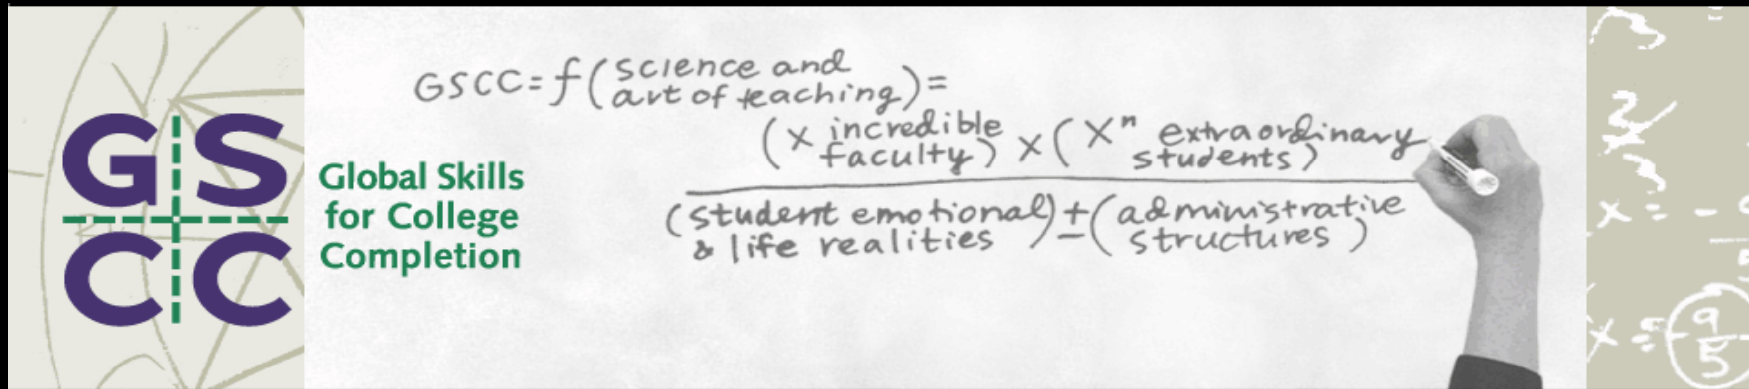 GS
CC
Global Skills
for College
Completion
GSCC=f(science and
art of teaching)=
(x incredible
faculty) x (xⁿ extraordinary
students)
(student emotional
& life realities) ± (administrative
structures)
x = -
x = - 9
5